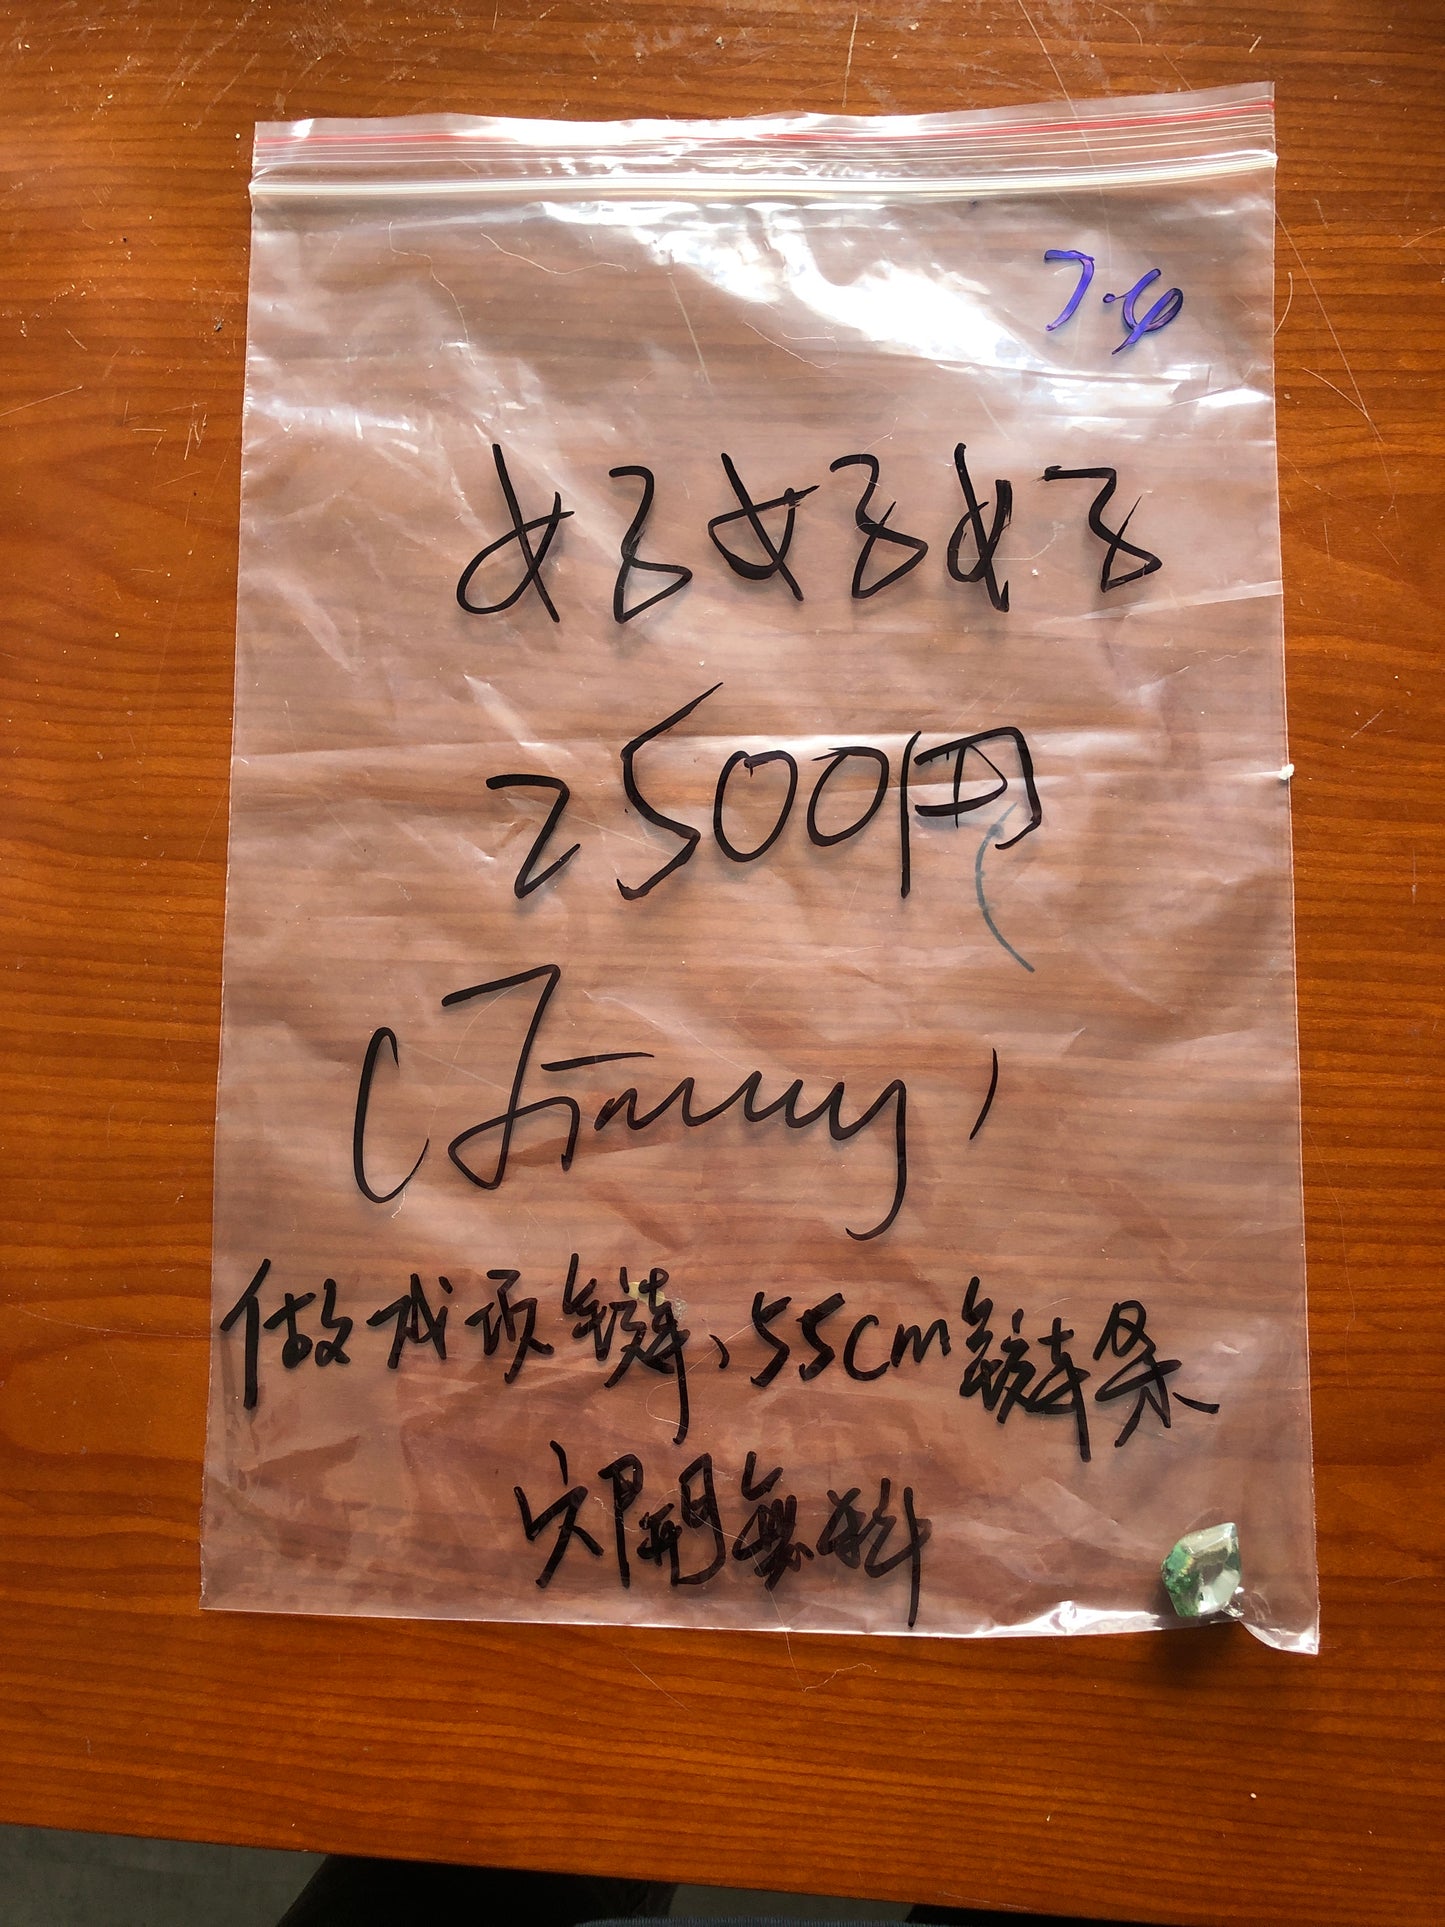 7.4
好好好
2500円
(Jimmy)
做成项鏈、55cm鏈条
穴開無料